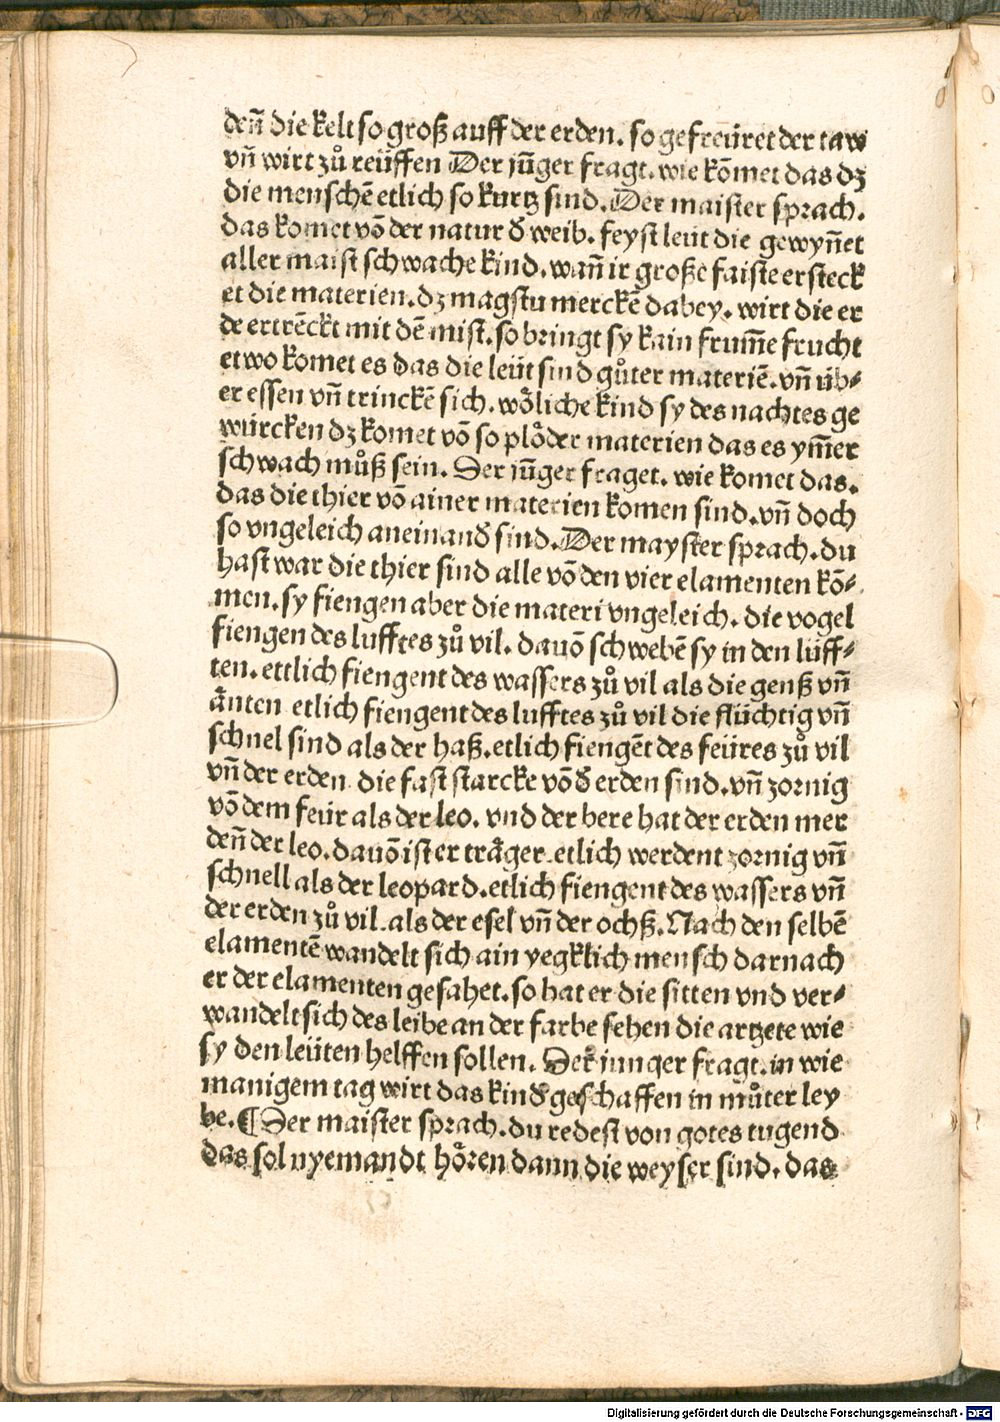 deñ die kelt so groß auff der erden. so gefreüret der taw
vñ wirt zů reüffen Der jũger fragt. wie kõmet das dz
die menschẽ etlich so kurtz sind. Der maister sprach.
das komet võ der natur d̕ weib. feyst leüt die gewyñet
aller maist schwache kind. wañ ir große faiste ersteck
et die materien. dz magstu merckẽ dabey. wirt die er
de ertrẽckt mit dẽ mist. so bringt sy kain frum̃e frucht
etwo komet es das die leüt sind gůter materiẽ. vñ üb⸗
er essen vñ trinckẽ sich. woͤliche kind sy des nachtes ge
würcken dz komet võ so ploͤder materien das es ym̃er
schwach můß sein. Der jũger fraget. wie komet das.
das die thier võ ainer materien komen sind. vñ doch
so vngeleich aneinand̕ sind. Der mayster sprach. du
hast war die thier sind alle võ den vier elamenten kõ⸗
men. sy fiengen aber die materi vngeleich. die vogel
fiengen des lufftes zů vil. dauõ schwebẽ sy in den lüff⸗
ten. ettlich fiengent des wassers zů vil als die genß vñ
aͤnten etlich fiengent des lufftes zů vil die flüchtig vñ
schnel sind als der haß. etlich fiengẽt des feüres zů vil
vñ der erden. die fast starcke võ d̕ erden sind. vñ zornig
võ dem feür als der leo. vnd der bere hat der erden mer
deñ der leo. dauõ ist er traͤger. etlich werdent zornig vñ
schnell als der leopard. etlich fiengent des wassers vñ
der erden zů vil. als der esel vñ der ochß. Nach den selbẽ
elamentẽ wandelt sich ain yegklich mensch darnach
er der elamenten gefahet. so hat er die sitten vnd ver⸗
wandelt sich des leibe an der farbe sehen die artzete wie
sy den leüten helffen sollen. Der junger fragt. in wie
manigem tag wirt das kind geschaffen in můter ley
be. ¶ Der maister sprach. du redest von gotes tugend
das sol nyemandt hoͤren dann die weyser sind. das
Digitalisierung gefördert durch die Deutsche Forschungsgemeinschaft - DFG